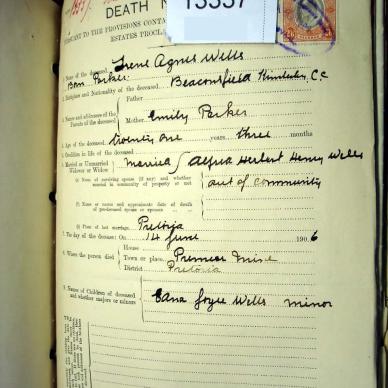 13337
DEATH N
PURSUANT TO THE PROVISIONS CONTA
ESTATES PROCL
1. Name of the deceased Irene Agnes Wells
Born Parker
2. Birthplace and Nationality of the deceased Beaconsfield Kimberley C.C.
3. Names and addresses of the Parents of the deceased
Father
Mother Emily Parker
4. Age of the deceased twenty one years three months
5. Condition in life of the deceased
6. Married or Unmarried Widower or Widow Married Alfred Herbert Henry Wells
Name of surviving spouse (if any) and whether married in community of property or not out of community
Name or names and approximate date of death of pre-deceased spouse or spouses
Place of last marriage Pretoria
7. The day of the decease: On 14 June 1906
8. Where the person died
House
Town or place Premier Mine
District Pretoria
9. Names of Children of deceased and whether majors or minors
Joyce Wells minor